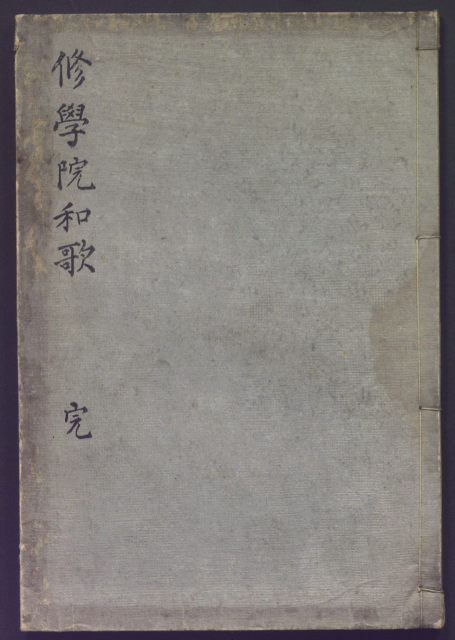 修學院和歌
完